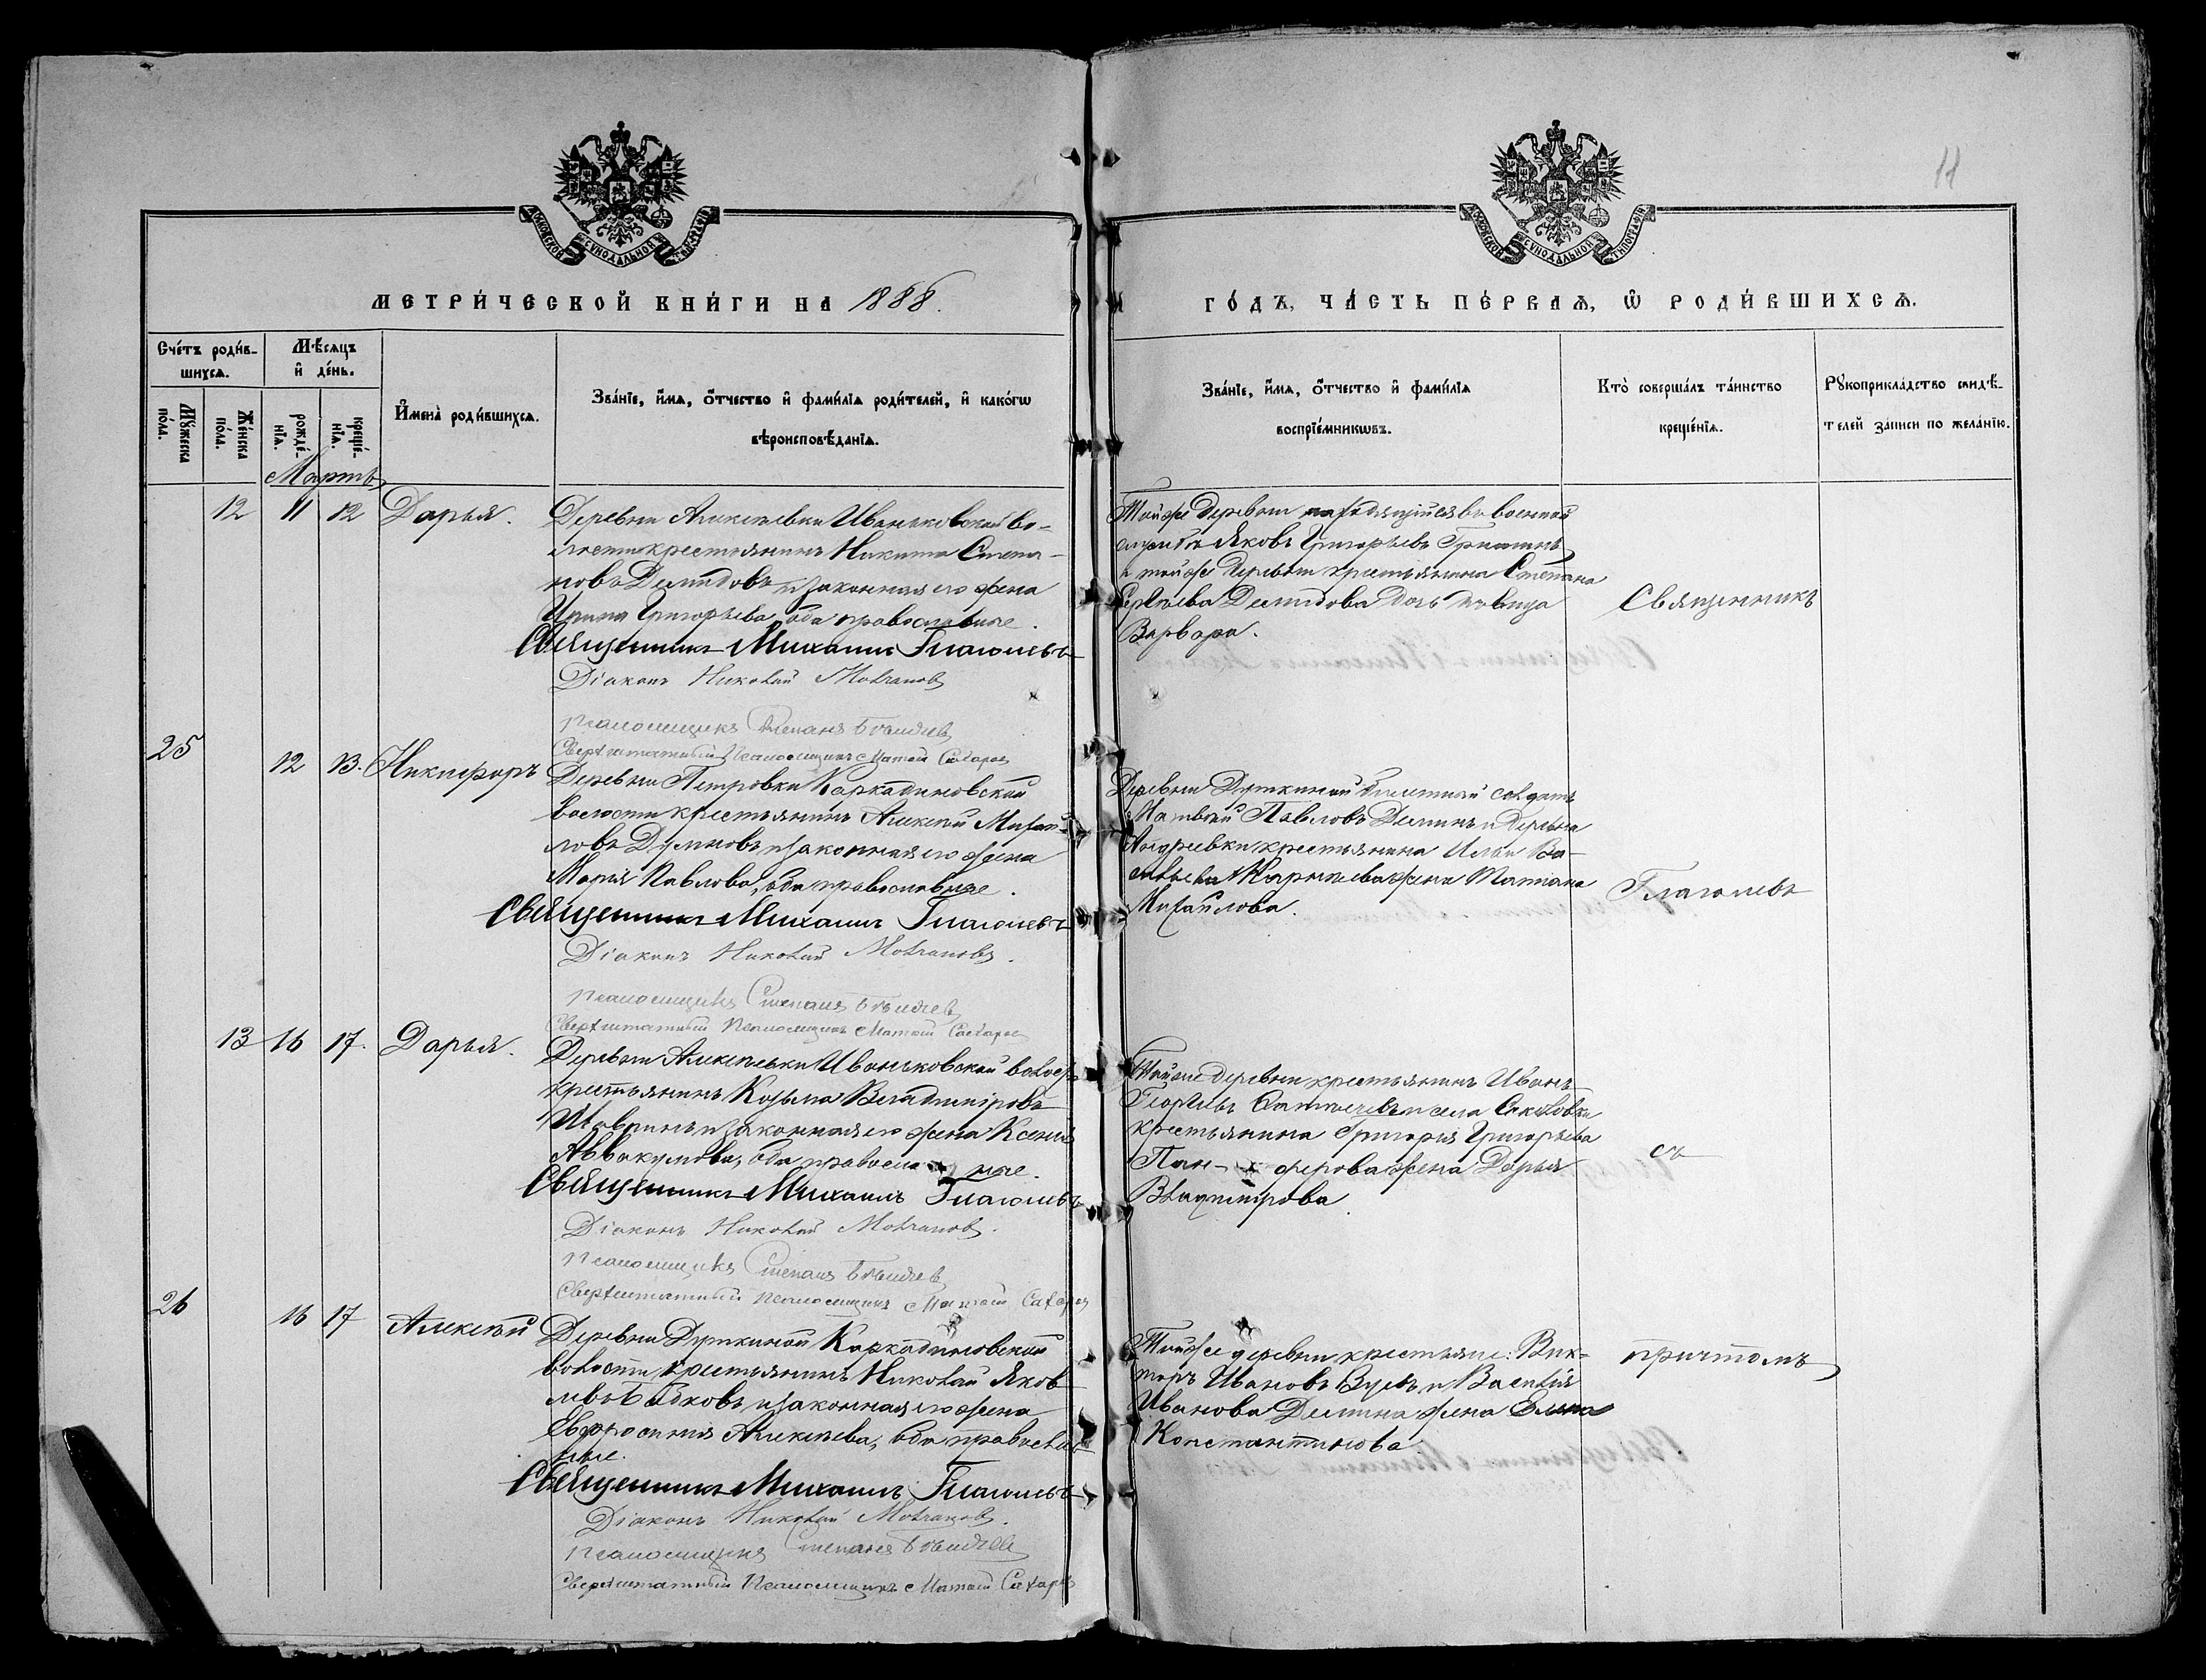 11
МОСКОВСКОЙ СѴНОДАЛЬНОЙ ТИПОГРАФІИ
МОСКОВСКОЙ СѴНОДАЛЬНОЙ ТИПОГРАФІИ
МЕТРИ́ЧЕСКОЙ КНИ́ГИ НА 1888.
ГО́ДЪ, ЧА́СТЬ ПЕ́РВАѦ, Ѽ РОДИ́ВШИХСѦ.
Сче́тъ роди́вшихсѧ.
Мꙋ́жеска по́ла.
Же́нска по́ла.
Мѣ́сѧцъ и҆ де́нь.
рожде́нїѧ.
креще́нїѧ.
И҆мена̀ роди́вшихсѧ.
Зва́нїе, и҆́мѧ, ѻ҆́тчество и҆ фами́лїѧ роди́телей, и҆ како́гѡ
вѣроисповѣ́данїѧ.
Зва́нїе, и҆́мѧ, ѻ҆́тчество и҆ фами́лїѧ
воспрїе́мникѡвъ.
Кто̀ соверша́лъ та́инство
креще́нїѧ.
Рꙋкоприкла́дство свидѣ́-
телей за́писи по жела́нїю.
Мартъ
12 11 12 Дарья.
Деревни Алексѣевки Иваньковской во-
лости крестьянинъ Никита Степа-
новъ Демидовъ и законная его жена
Ирина Григорьева, оба православные.
Священникъ Михаилъ Глаголевъ
Діаконъ Николай Молчановъ
псаломщикъ Степанъ
Сверхштатный Псаломщикъ Матвѣй Сахаровъ
Тойже деревни находящійся въ военной
службѣ Яковъ Григорьевъ Гришинъ
и тойже деревни крестьянина Степана
Сергѣева Демидова дочь дѣвица
Варвара.
Священникъ
25 12 13. Никифоръ
Деревни Петровки Каркадиновской
волости крестьянинъ Алексѣй Михай-
ловъ и законная его жена
Марія Павлова, оба православные.
Священникъ Михаилъ Глаголевъ
Діаконъ Николай Молчановъ.
псаломщикъ Степанъ
Сверхштатный Псаломщикъ Матвѣй Сахаровъ
Деревни Дуткиной билетный солдатъ
Матвѣй Павловъ Деминъ и деревни
Андреевки крестьянина Ильи Ва-
сильева жена Татіана
Михайлова.
Глаголевъ
13 16 17. Дарья.
Деревни Алексѣевки Иваньковской волос.
крестьянинъ Козьма Владиміровъ
и законная его жена Ксенія
Аввакумова, оба православные.
Священникъ Михаилъ Глаголевъ
Діаконъ Николай Молчановъ.
псаломщикъ Степанъ
Сверхштатный псаломщикъ Матвѣй Сахаровъ
Тойже деревни крестьянинъ Иванъ
Георгіевъ и села
крестьянина Григорія Григорьева
Пан-ферова жена Дарья
Владимірова.
съ
26 16 17 Алексѣй
Деревни Дуткиной Каркадиновской
волости, крестьянинъ Николай Яков-
левъ и законная его жена
Евфросинія Алексѣева, оба православ-
ные.
Священникъ Михаилъ Глаголевъ
Діаконъ Николай Молчановъ.
псаломщикъ Степанъ
Сверхштатный Псаломщикъ Матвѣй Сахаровъ
Тойже деревни крестьяне: Вик-
торъ Ивановъ и Василія
Иванова Демина жена Елена
Константинова.
причтомъ